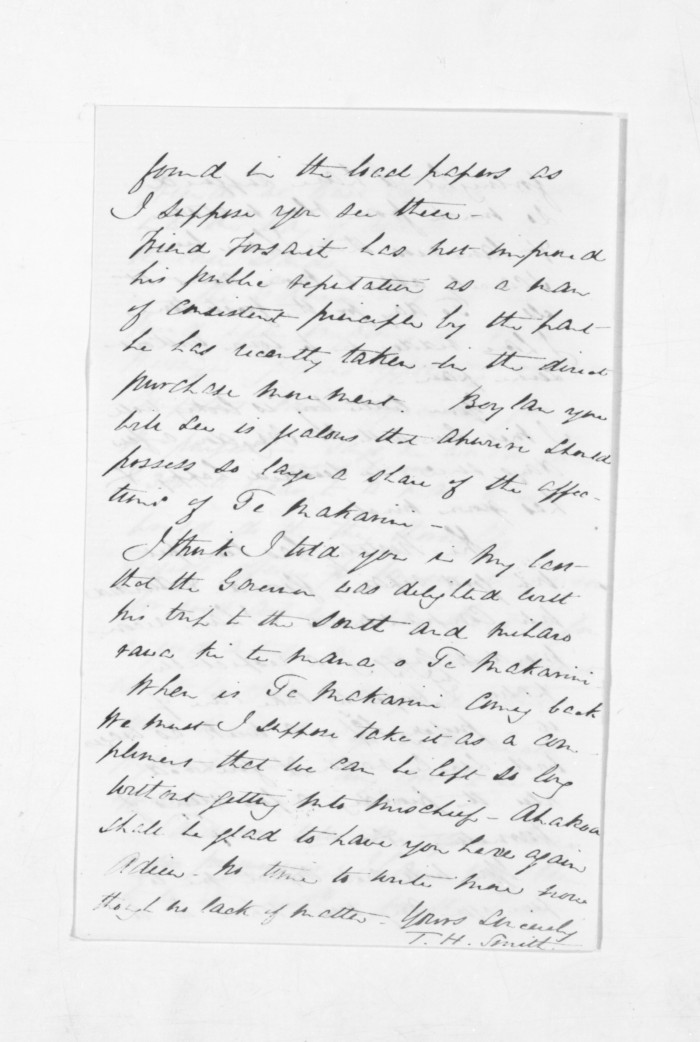 found in the local papers as
I suppose you see them -
Friend Forsaith has not improved
his public reputation as a man
of consistent principle by the part
he has recently taken in the direct
purchase movement. Boylan you
will see is jealous that Ahuriri should
possess so large a share of the affec-
tions of Te Makarini -
I think I told you in my last
that the Governor was delighted with
his trip to the South and miharo
rawa ki te mana o Te Makarini
When is Te Makarini coming back
We must I suppose take it as a com
pliment that we can be left so long
without getting into mischief - Ahakoa
shall be glad to have you here again
Adieu - no time to write more now
though no lack of matter - Yours Sincerely
T. H. Smith.